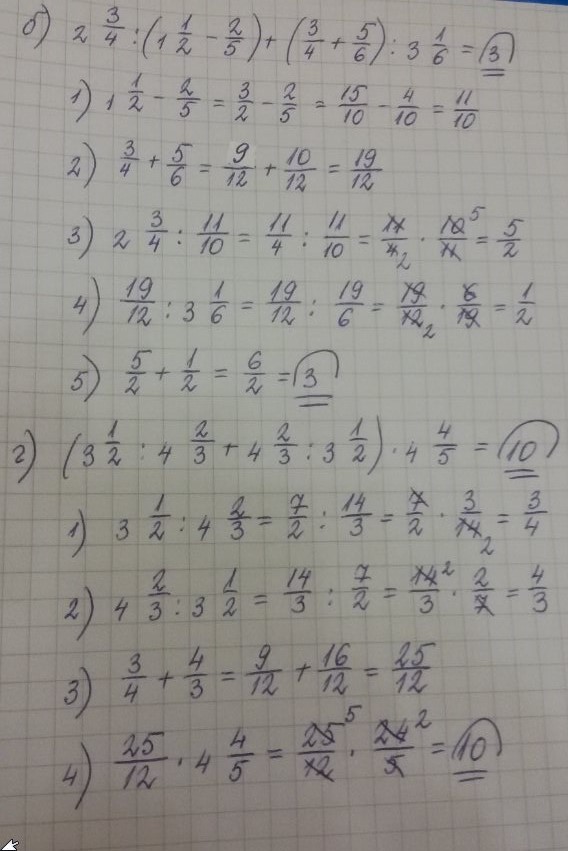 б) 2 3/4 : (1 1/2 - 2/5) + (3/4 + 5/6) : 3 1/6 = 3
1) 1 1/2 - 2/5 = 3/2 - 2/5 = 15/10 - 4/10 = 11/10
2) 3/4 + 5/6 = 9/12 + 10/12 = 19/12
3) 2 3/4 : 11/10 = 11/4 : 11/10 = 11/4 2 · 10 5/11 = 5/2
4) 19/12 : 3 1/6 = 19/12 : 19/6 = 19/12 2 · 6/19 = 1/2
5) 5/2 + 1/2 = 6/2 = 3
г) (3 1/2 : 4 2/3 + 4 2/3 : 3 1/2) · 4 4/5 = 10
1) 3 1/2 : 4 2/3 = 7/2 : 14/3 = 7/2 · 3/14 2 = 3/4
2) 4 2/3 : 3 1/2 = 14/3 : 7/2 = 14 2/3 · 2/7 = 4/3
3) 3/4 + 4/3 = 9/12 + 16/12 = 25/12
4) 25/12 · 4 4/5 = 25 5/12 · 24 2/5 = 10